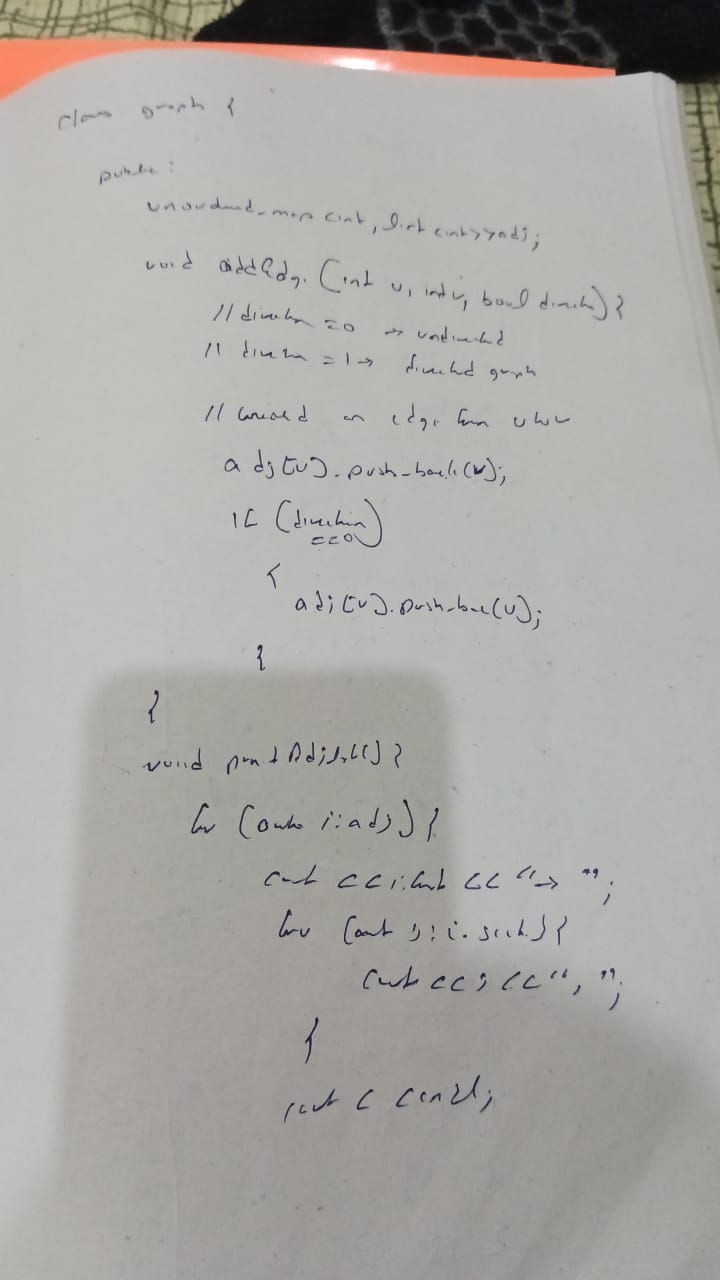 class graph {
public:
unordered_map <int, list<int>> adj;
void addEdge (int u, int v, bool direction) {
// direction = 0 → undirected
// direction = 1 → directed graph
// create an edge from u to v
adj[u].push_back(v);
if (direction
==0)
{
adj[v].push_back(u);
}
}
void printAdjList() {
for (auto i: adj) {
cout << i.first << "→ ";
for (auto j: i.second) {
cout << j << ", ";
}
cout << endl;